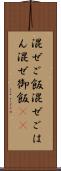 混ぜご飯混ぜごは
ん混ぜ御飯